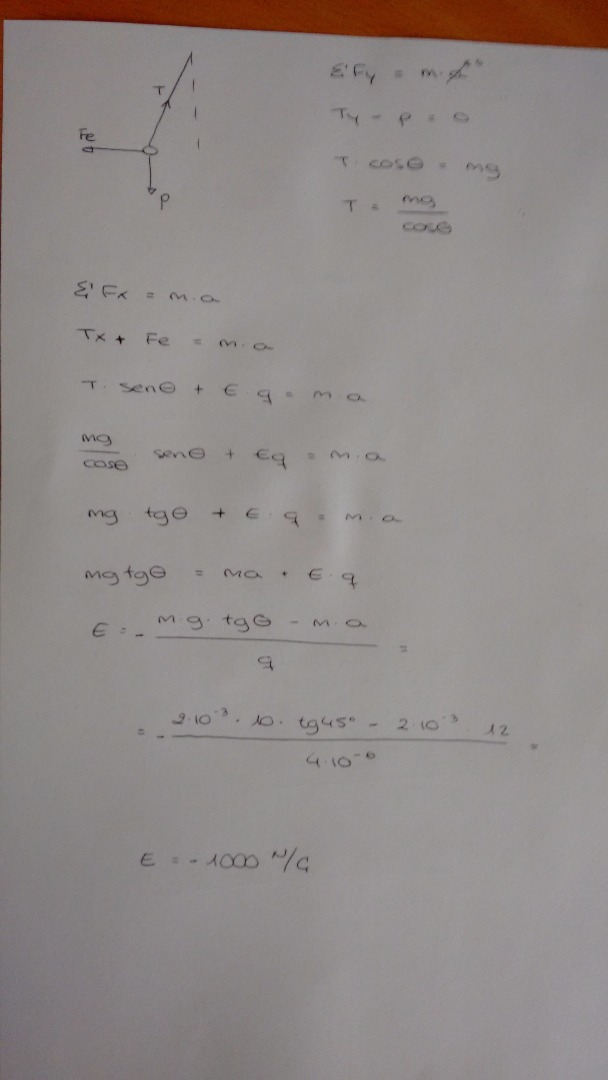 T
Fe
P
Σ Fy = m·a⁰
Ty - P = 0
T · cosθ = mg
T = mg / cosθ
Σ Fx = m·a
Tx + Fe = m·a
T · senθ + E · q = m·a
mg / cosθ · senθ + Eq = m·a
mg · tgθ + E · q = m·a
mg tgθ = ma + E·q
E = - m·g·tgθ - m·a / q =
= - 2·10⁻³ · 10 · tg45° - 2·10⁻³ · 12 / 4·10⁻⁶ =
E = -1000 N/C